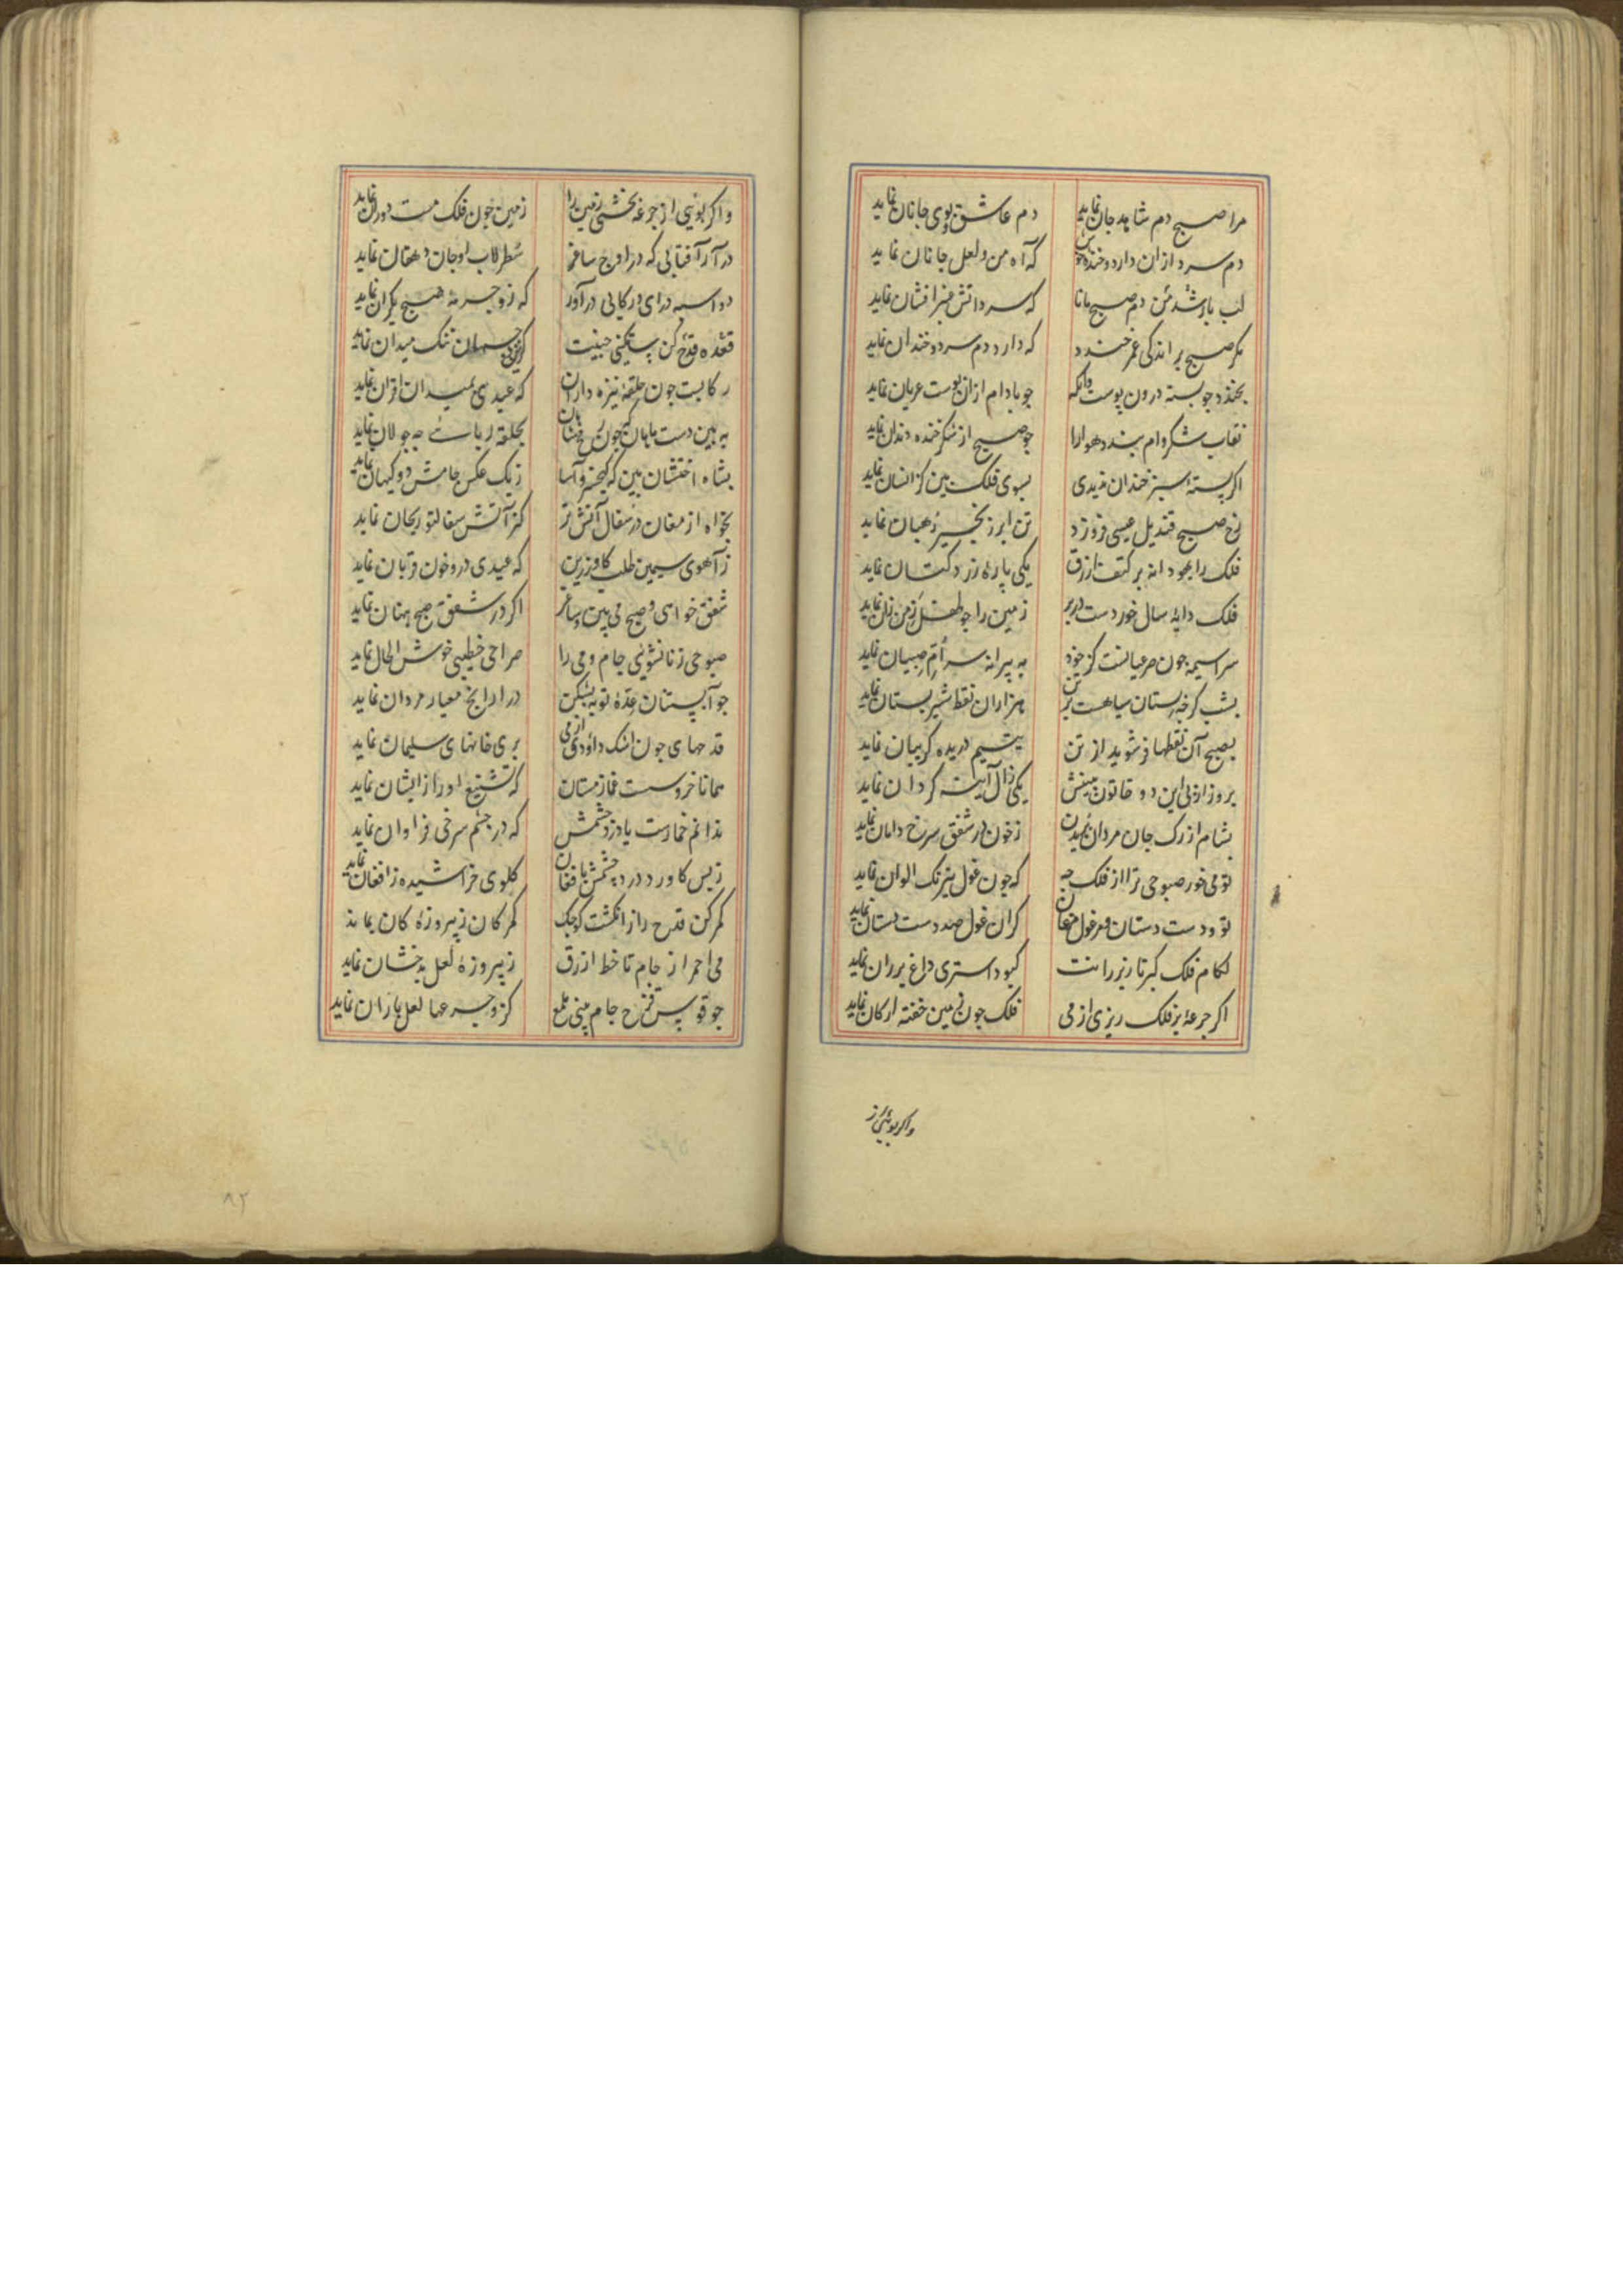 مرا صبح دم شاهد جان نماید دم عاشق و بوی جانان نماید
دم سرد ازان دارد و خنده خوش که آه من و لعل جانان نماید
لب یار شد دم صبح مانا که سرد آتش عنبر افشان نماید
مگر صبح بر اندکی عمر خندد که دارد دم سرد و خندان نماید
بخندد جو بسته درون پوست وانکه جو بادام ازان پوست عریان نماید
نقاب شکر وام بندد هوا را جو صبح از شکر خنده دندان نماید
اکر پسته سبز خندان ندیدی بسوی فلک بین کز انسان نماید
رخ صبح قندیل عیسی فروزد تن ابر زنجیر رهبان نماید
فلک را یهودانه بر کتف ازرق یکی پاره زرد کتان نماید
فلک دایهٔ سال خوردست در بر زمین را جو طفل زمن زان نماید
سراسیمه جون صرعیانست کز خود به پیرانه سر ام صبیان نماید
بشب کرجه پستان سیاهست بر تن هزاران نقط شیر پستان نماید
بصبح آن نقطها فرو شوید از تن یتیم دریده کریبان نماید
بروز از پی این دو خاتون بینش یکی زال آیینه کردان نماید
بشام از رک جان مردان بریدن ز خون در شفق سرخ دامان نماید
تو می خور صبوحی ترا از فلک جه که جون غول نیرنک الوان نماید
تو و دست دستان و مرغول مرغان کران غول صد دست دستان نماید
لکام فلک کیر تا زیر رانت کبود استری داغ بر ران نماید
اکر جرعهٔ بر فلک ریزی از می فلک جون زمین خفته ارکان نماید
واکر بوئی از
واکر بوئی از جرعه بخشی زمین را زمین جون فلک مست دوران نماید
درآر آفتابی که در اوج ساغر سطرلاب او جان دهقان نماید
دو اسبه درای و رکابی درآور که زو جرمهٔ صبح یکران نماید
قعده قدح کن جنیبت تنک میدان نماید
رکابست جون حلقهٔ نیزه داران که عیدی بمیدان اقران نماید
به بین دست جون رخ فشان بحلقه ربایی جه جولان نماید
بشاه اخستان بین که کیخسرو آسا ز یک عکس جامش دو کیهان نماید
بخواه از مغان در سفال آتش تر کز آتش سفال تو ریحان نماید
ز آهوی سیمین طلب کاو زرین که عیدی درو خون قربان نماید
شفق خواهی و صبح می بین و ساغر اکر در شفق صبح پنهان نماید
صبوحی زناشوئی جام و می را صراحی خطیبی خوش الحان نماید
جو آبستنان عدهٔ توبه بشکن درار آنج معیار مردان نماید
قدحهای جون اشک داودی از می پری خانهای سلیمان نماید
همانا خروسست غماز مستان که تشنیع او راز ایشان نماید
ندانم خمارست یا درد جشمش که در جشم سرخی فراوان نماید
ز بس کاورد درد جشمش بافغان کلوی خراشیده ز افغان نماید
کمر کن قدح را ز انکشت کوجک کمر کان ز پیروزهٔ کان نماید
می احمر از جام تا خط ازرق ز پیروزه لعل بدخشان نماید
جو قوس قزح جام بینی ملمع کز و جرعها لعل باران نماید
۸۲